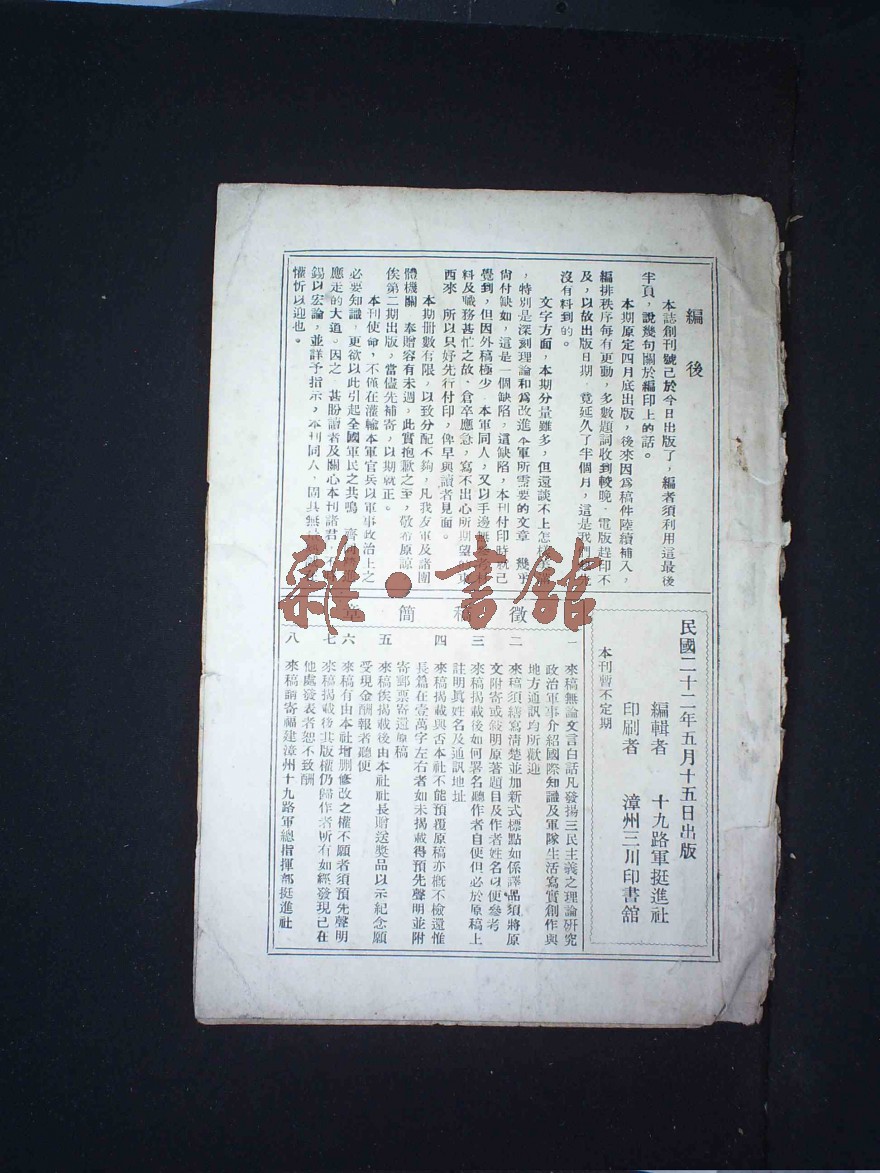 編後
本誌創刊號已於今日出版了，編者須利用這最後
半頁，說幾句關於編印上的話。
本期原定四月底出版，後來因爲稿件陸續補入，
編排秩序每有更動，多數題詞收到較晚，電版趕印不
及，以故出版日期，竟延久了半個月，這是我們
沒有料到的。
文字方面，本期分量雖多，但還談不上怎樣
，特別是深刻理論和爲改進本軍所需要的文章，幾乎
尚付缺如，這是一個缺陷，這缺陷，本刊付印時就已
覺到，但因外稿極少，本軍同人，又以手邊
料及職務甚忙之故，倉卒應急，寫不出心所期望
西來，所以只好先行付印，俾早與讀者見面。
本期册數有限，以致分配不夠，凡我友軍及諸團
體機關，奉贈容有未週，此實抱歉之至，敬布原諒，
俟第二期出版，當儘先補寄，以期就正。
本刊使命，不僅在灌輸本軍官兵以軍事政治上之
必要知識，更欲以此引起全國軍民之共鳴，齊
應走的大道。因之，甚盼讀者及關心本刊諸君，不
錫以宏論，並詳予指示，本刊同人，固具無
懽忻以迎也。
民國二十二年五月十五日出版
編輯者　十九路軍挺進社
印刷者　漳州三川印書館
本刊暫不定期
徵稿簡章
一　來稿無論文言白話凡發揚三民主義之理論研究
政治軍事介紹國際知識及軍隊生活寫實創作與
地方通訊均所歡迎
二　來稿須繕寫清楚並加新式標點如係譯品須將原
文附寄或敍明原著題目及作者姓名以便參考
三　來稿揭載後如何署名聽作者自便但必於原稿上
註明眞姓名及通訊地址
四　來稿揭載與否本社不能預覆原稿亦概不檢還惟
長篇在壹萬字左右者如未揭載得預先聲明並附
寄郵票寄還原稿
五　來稿俟揭載後由本社社長贈送獎品以示紀念願
受現金酬報者聽便
六　來稿有由本社增删修改之權不願者須預先聲明
七　來稿揭載後其版權仍歸作者所有如經發現已在
他處發表者恕不致酬
八　來稿請寄福建漳州十九路軍總指揮部挺進社
雜·書館